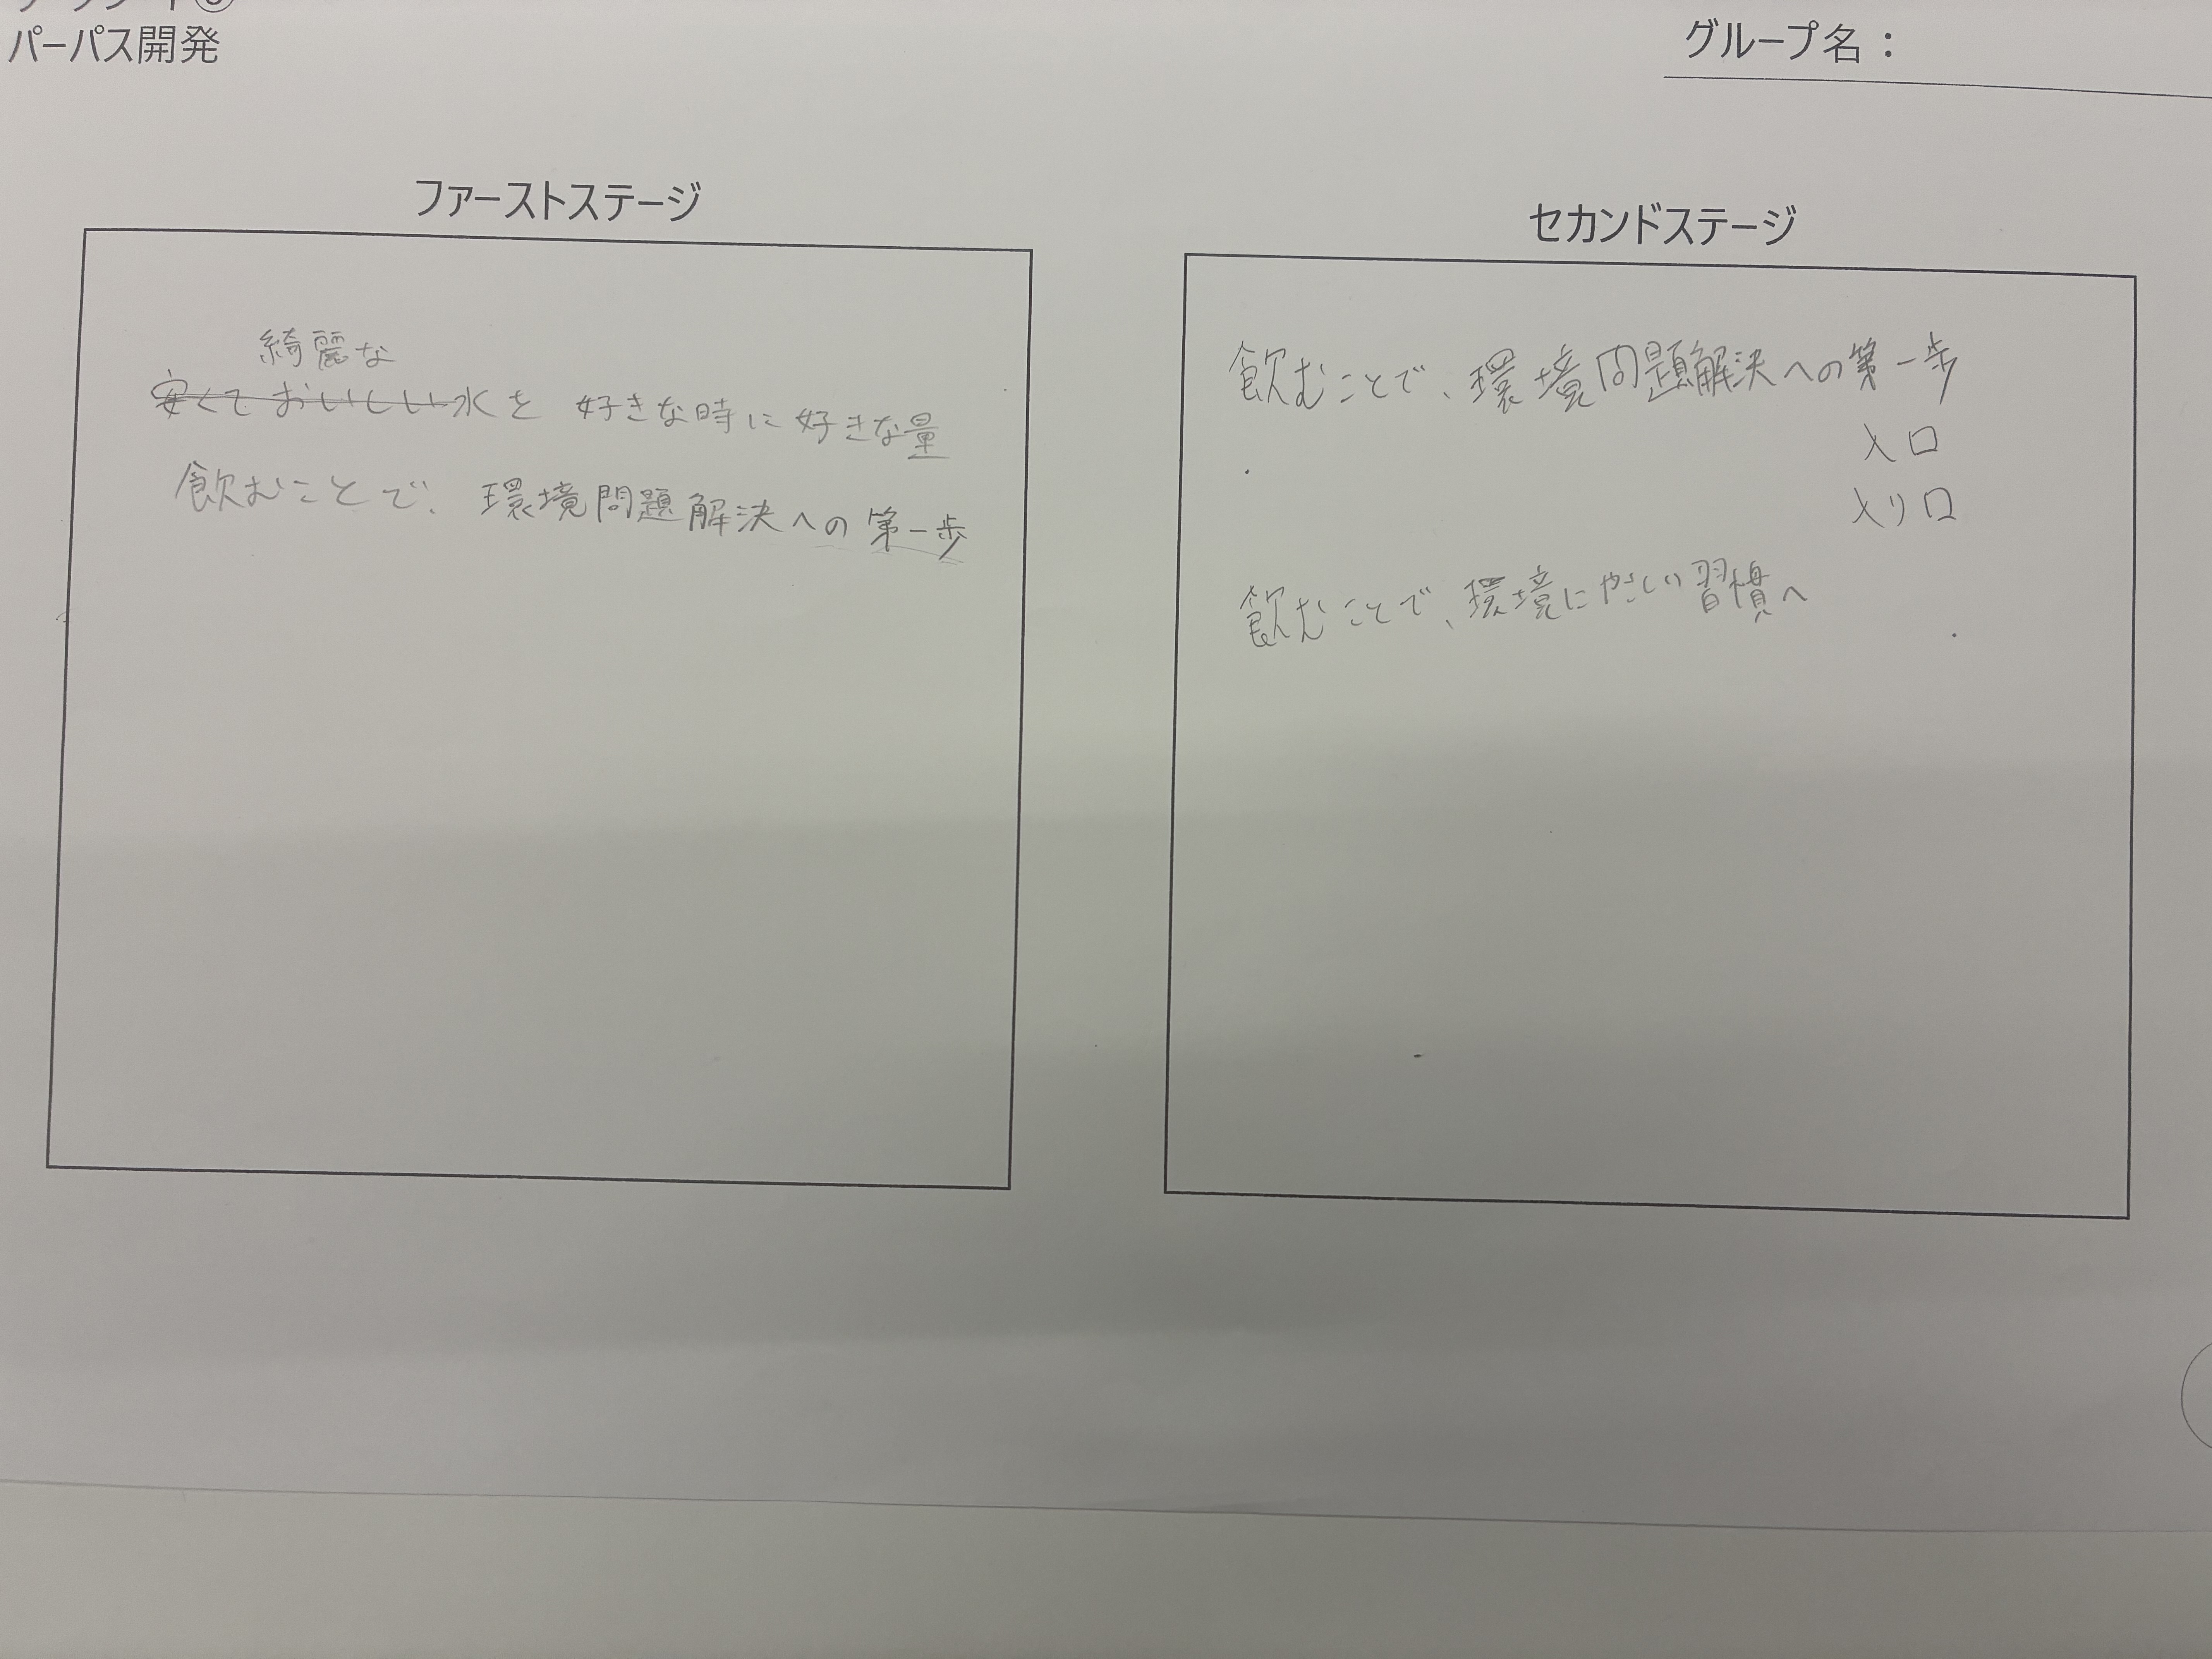 パーパス開発
グループ名：
ファーストステージ
綺麗な
安くておいしい水を 好きな時に好きな量
飲むことで、環境問題解決への第一歩
セカンドステージ
飲むことで、環境問題解決への第一歩
入口
入り口
飲むことで、環境にやさしい習慣へ